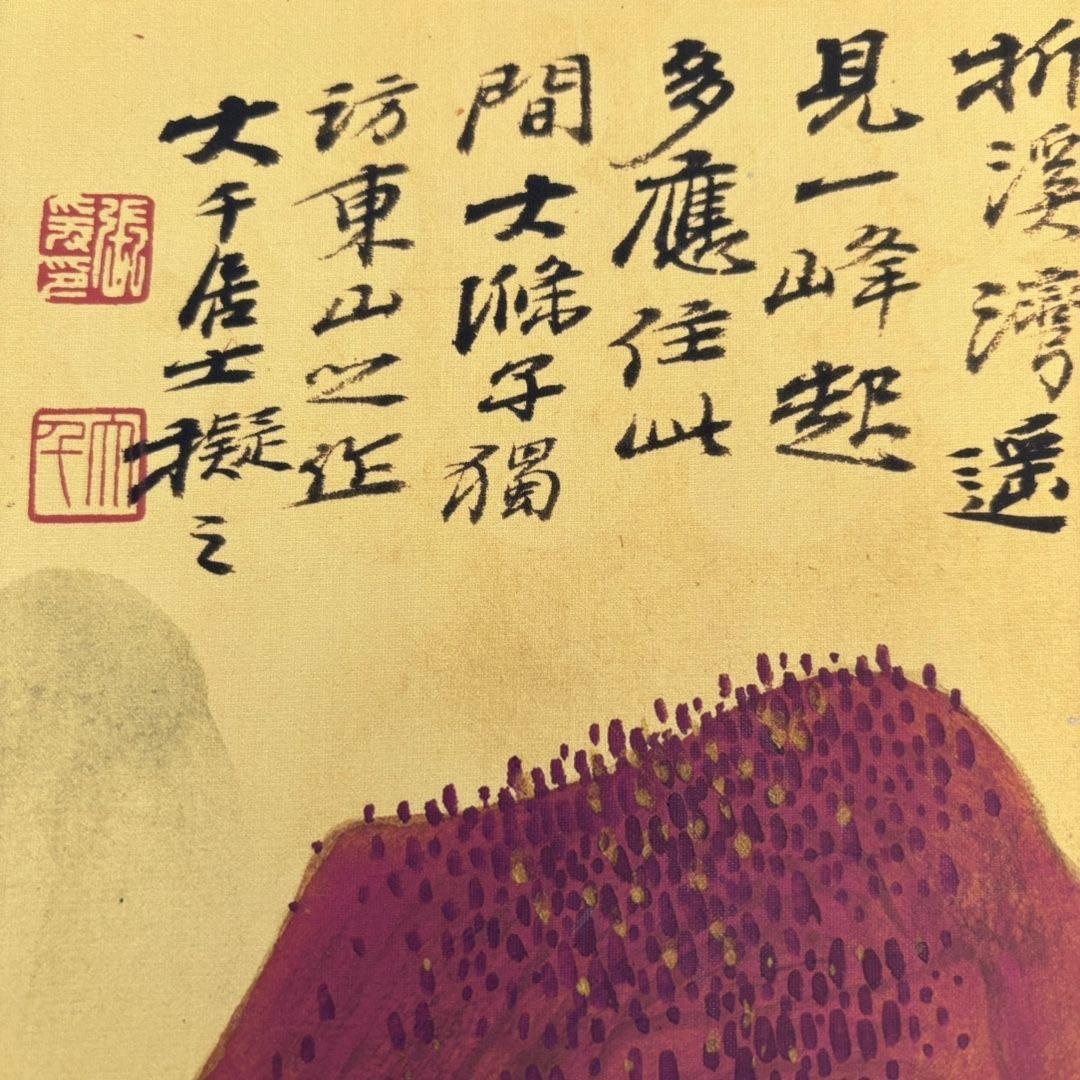 折溪灣遥
見一峰起
多應住此
間 大滌子獨
訪東山之作
大千居士擬之
張爰印
大千